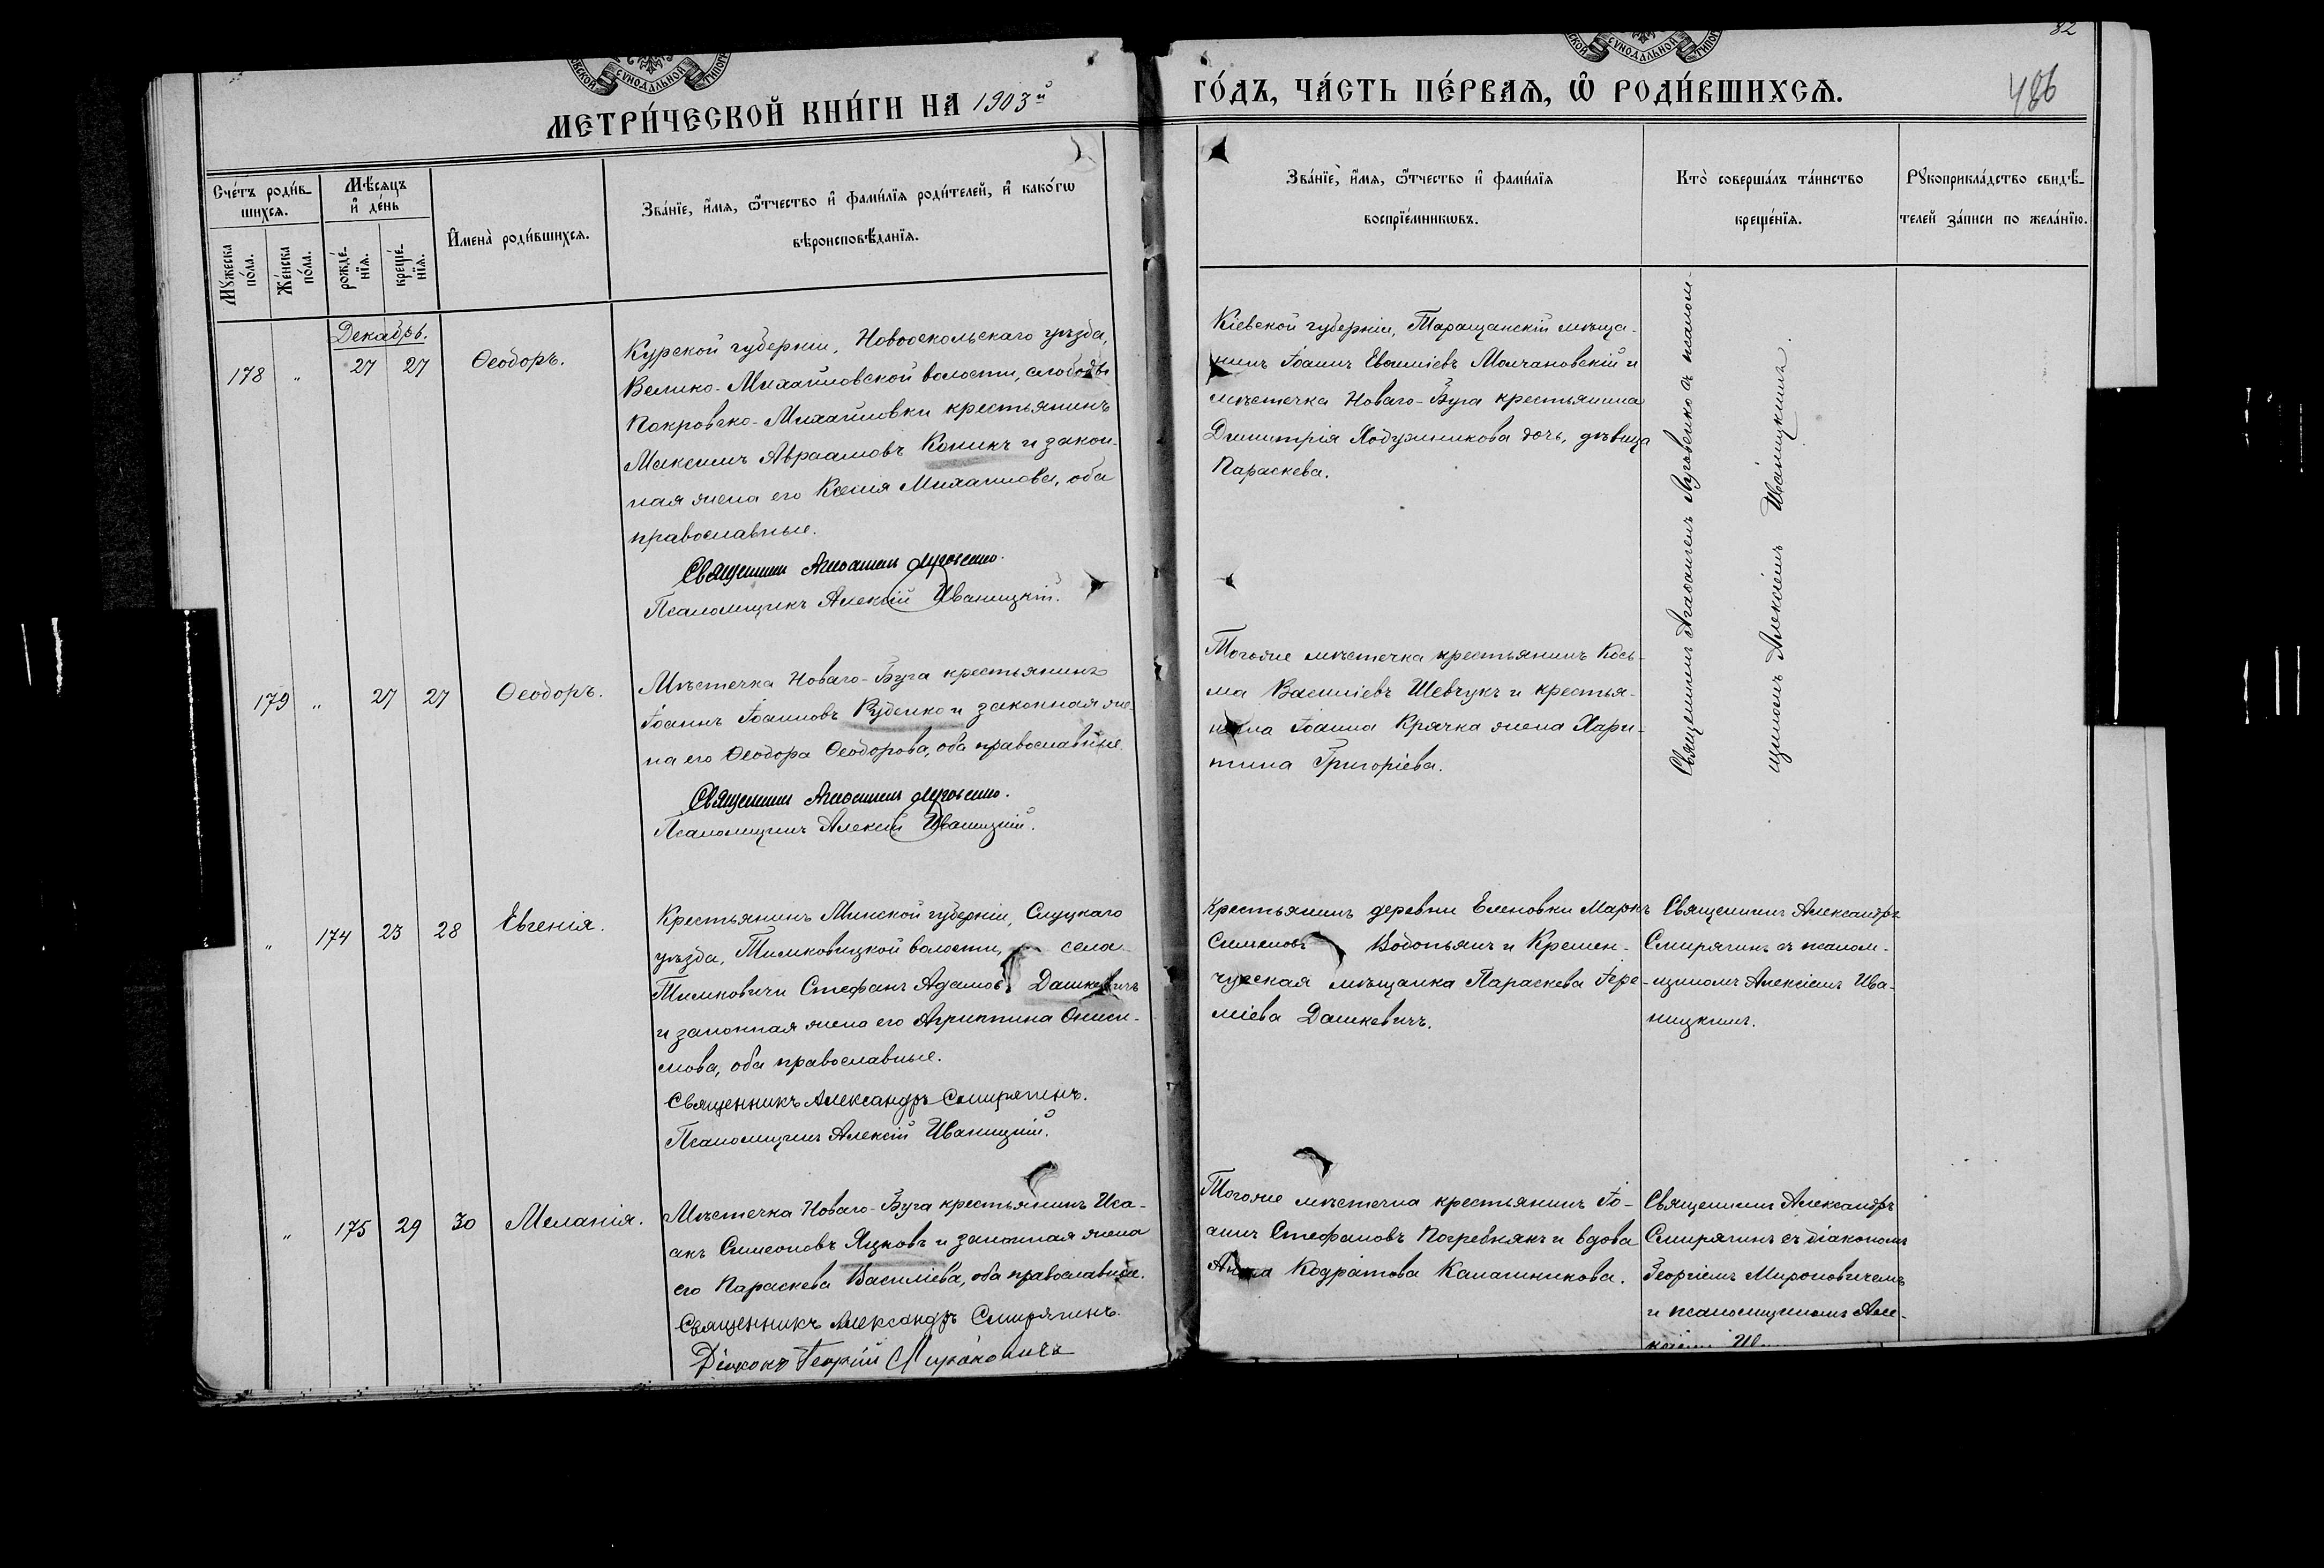 82
486
СѴНОДАЛЬНОЙ
СѴНОДАЛЬНОЙ
МЕТРИ́ЧЕСКОЙ КНИ́ГИ НА 1903й
ГО́ДЪ, ЧА́СТЬ ПЕ́РВАѦ, Ѡ҆ РОДИ́ВШИХСѦ.
Сче́тъ роди́в-
шихсѧ.
Мѣ́сѧцъ
и҆ де́нь
Мꙋжеска
по́ла.
Же́нска
по́ла.
рожде́-
нїѧ.
креще́-
нїѧ.
И҆мена̀ роди́вшихсѧ.
Зва́нїе, и҆́мѧ, ѻ҆́тчество и҆ фами́лїѧ роди́телей, и҆ како́гѡ
вѣроисповѣ́данїѧ.
Зва́нїе, и҆́мѧ, ѻ҆́тчество и҆ фами́лїѧ
воспрїе́мникѡвъ.
Кто̀ соверша́лъ та́инство
креще́нїѧ.
Рꙋкоприкла́дство свидѣ́-
телей за́писи по жела́нїю.
Декабрь.
178 " 27 27 Ѳеодоръ.
Курской губерніи, Новооскольскаго уѣзда,
Велико-Михайловской волости, слободы
Покровско-Михайловки крестьянинъ
Максимъ Авраамовъ Коникъ и закон-
ная жена его Ксенія Михаилова, оба
православные.
Священникъ Агаѳангелъ Луговенко.
Псаломщикъ Алексій Иваницкій.
Кіевской губерніи, Таращанскій мѣща-
нинъ Іоаннъ Евѳиміевъ Молчановскій и
мѣстечка Новаго-Буга крестьянина
Димитрія Ходужникова дочь, дѣвица
Параскева.
Священникъ Агаѳангелъ Луговенко съ псалом-
щикомъ Алексіемъ Иваницкимъ.
179 " 27 27 Ѳеодоръ.
Мѣстечка Новаго-Буга крестьянинъ
Іоаннъ Іоанновъ Руденко и законная же-
на его Ѳеодора Ѳеодорова, оба православные.
Священникъ Агаѳангелъ Луговенко.
Псаломщикъ Алексій Иваницкій.
Тогоже мѣстечка крестьянинъ Кось-
ма Василіевъ Шевчукъ и крестья-
нина Іоанна Крячка жена Хари-
тина Григоріева.
" 174 23 28 Евгенія.
Крестьянинъ Минской губерніи, Слуцкаго
уѣзда, Тимковицкой волости, села
Тимковичи Стефанъ Адамовъ Дашкевичъ
и законная жена его Агриппина Ониси-
мова, оба православные.
Священникъ Александръ Смирягинъ.
Псаломщикъ Алексій Иваницкій.
Крестьянинъ деревни Еленовки Маркъ
Симеоновъ Водопьянъ и Кремен-
чугская мѣщанка Параскева Іере-
міева Дашкевичъ.
Священникъ Александръ
Смирягинъ съ псалом-
щикомъ Алексіемъ Ива-
ницкимъ.
" 175 29 30 Меланія.
Мѣстечка Новаго-Буга крестьянинъ Иса-
акъ Симеоновъ Яцковъ и законная жена
его Параскева Василіева, оба православные.
Священникъ Александръ Смирягинъ.
Діаконъ Георгій Мироновичъ
Тогоже мѣстечка крестьянинъ Іо-
аннъ Стефановъ Погребнякъ и вдова
Анна Кодратова Калашникова.
Священникъ Александръ
Смирягинъ съ діакономъ
Георгіемъ Мироновичемъ
и псаломщикомъ Але-